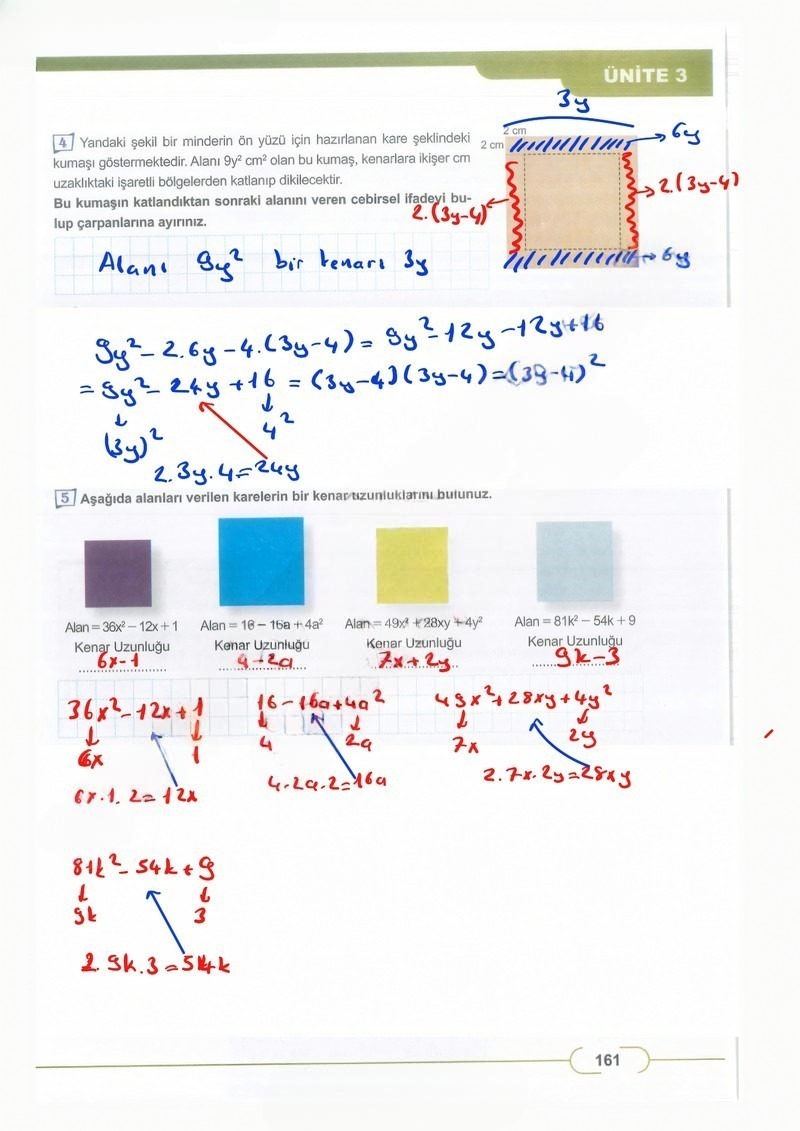 ÜNİTE 3
3y
4 Yandaki şekil bir minderin ön yüzü için hazırlanan kare şeklindeki
kumaşı göstermektedir. Alanı 9y² cm² olan bu kumaş, kenarlara ikişer cm
uzaklıktaki işaretli bölgelerden katlanıp dikilecektir.
Bu kumaşın katlandıktan sonraki alanını veren cebirsel ifadeyi bu-
lup çarpanlarına ayırınız.
2 cm
2 cm
6y
2.(3y-4)
2.(3y-4)
6y
Alanı 9y² bir kenarı 3y
9y² - 2.6y - 4.(3y-4) = 9y² - 12y - 12y + 16
= 9y² - 24y + 16 = (3y-4)(3y-4) = (3y-4)²
(3y)² 4²
2.3y.4=24y
5 Aşağıda alanları verilen karelerin bir kenar uzunluklarını bulunuz.
Alan = 36x² – 12x + 1 Alan = 16 – 16a + 4a² Alan = 49x² + 28xy + 4y² Alan = 81k² – 54k + 9
Kenar Uzunluğu Kenar Uzunluğu Kenar Uzunluğu Kenar Uzunluğu
6x-1 4-2a 7x+2y 9k-3
36x²-12x+1 16-16a+4a² 49x²+28xy+4y²
6x 1 4 2a 7x 2y
6x.1.2=12x 4.2a.2=16a 2.7x.2y=28xy
81k²-54k+9
9k 3
2.9k.3=54k
161